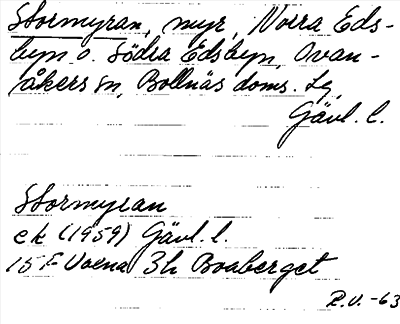 Stormyran, myr, Norra Eds-
byn o. Södra Edsbyn, Ovan-
åkers sn, Bollnäs doms. Lg,
Gävl. l.
Stormyran
ek (1959) Gävl. l.
15 F Voxna 3h Boaberget
R.U. -63